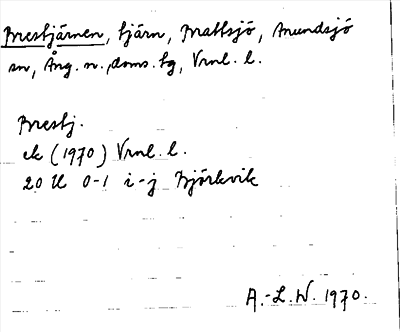 Prestjärnen, tjärn, Prattsjö, Anundsjö
sn, Ång. n. doms. tg, Vrnl. l.
Prestj.
ek (1970) Vrnl. l.
20 H 0-1 i-j Björkvik
A.-L.W. 1970.